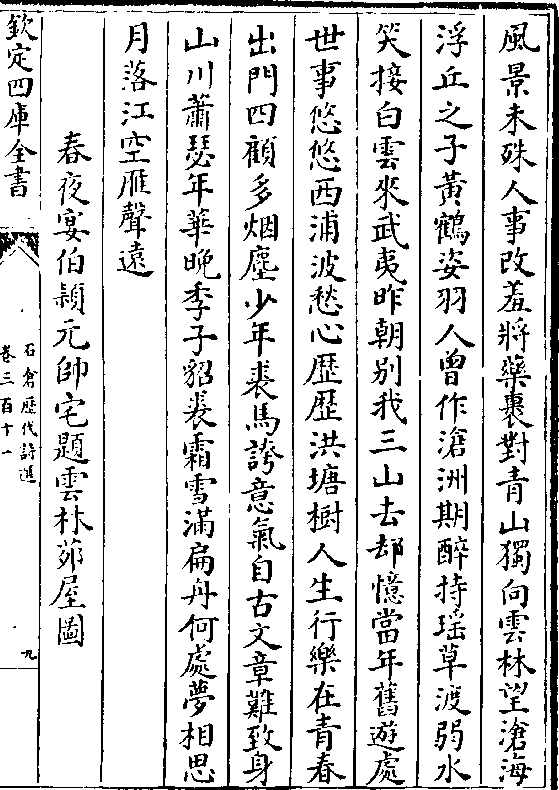 風景未殊人事改羞將藥裹對青山獨向雲林望滄海
浮丘之子黃鶴姿羽人曾作滄洲期醉持瑤草渡弱水
笑接白雲來武夷昨朝別我三山去却憶當年舊遊處
世事悠悠西浦波愁心歷歷洪塘樹人生行樂在青春
出門四顧多烟塵少年裘馬誇意氣自古文章難致身
山川蕭瑟年華晚季子貂裘霜雪滿扁舟何處夢相思
月落江空雁聲遠
春夜宴伯顔元帥宅題雲林茆屋圖
欽定四庫全書
石倉歷代詩選
卷三百十一
九